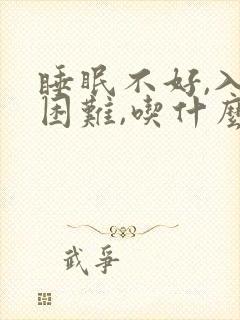 睡眠不好,入
困難,喫什麼
武爭